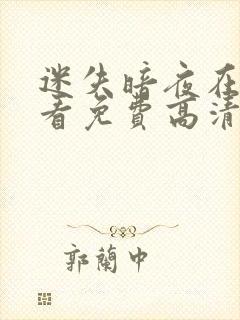 迷失暗夜在
看免費高清
郭蘭中